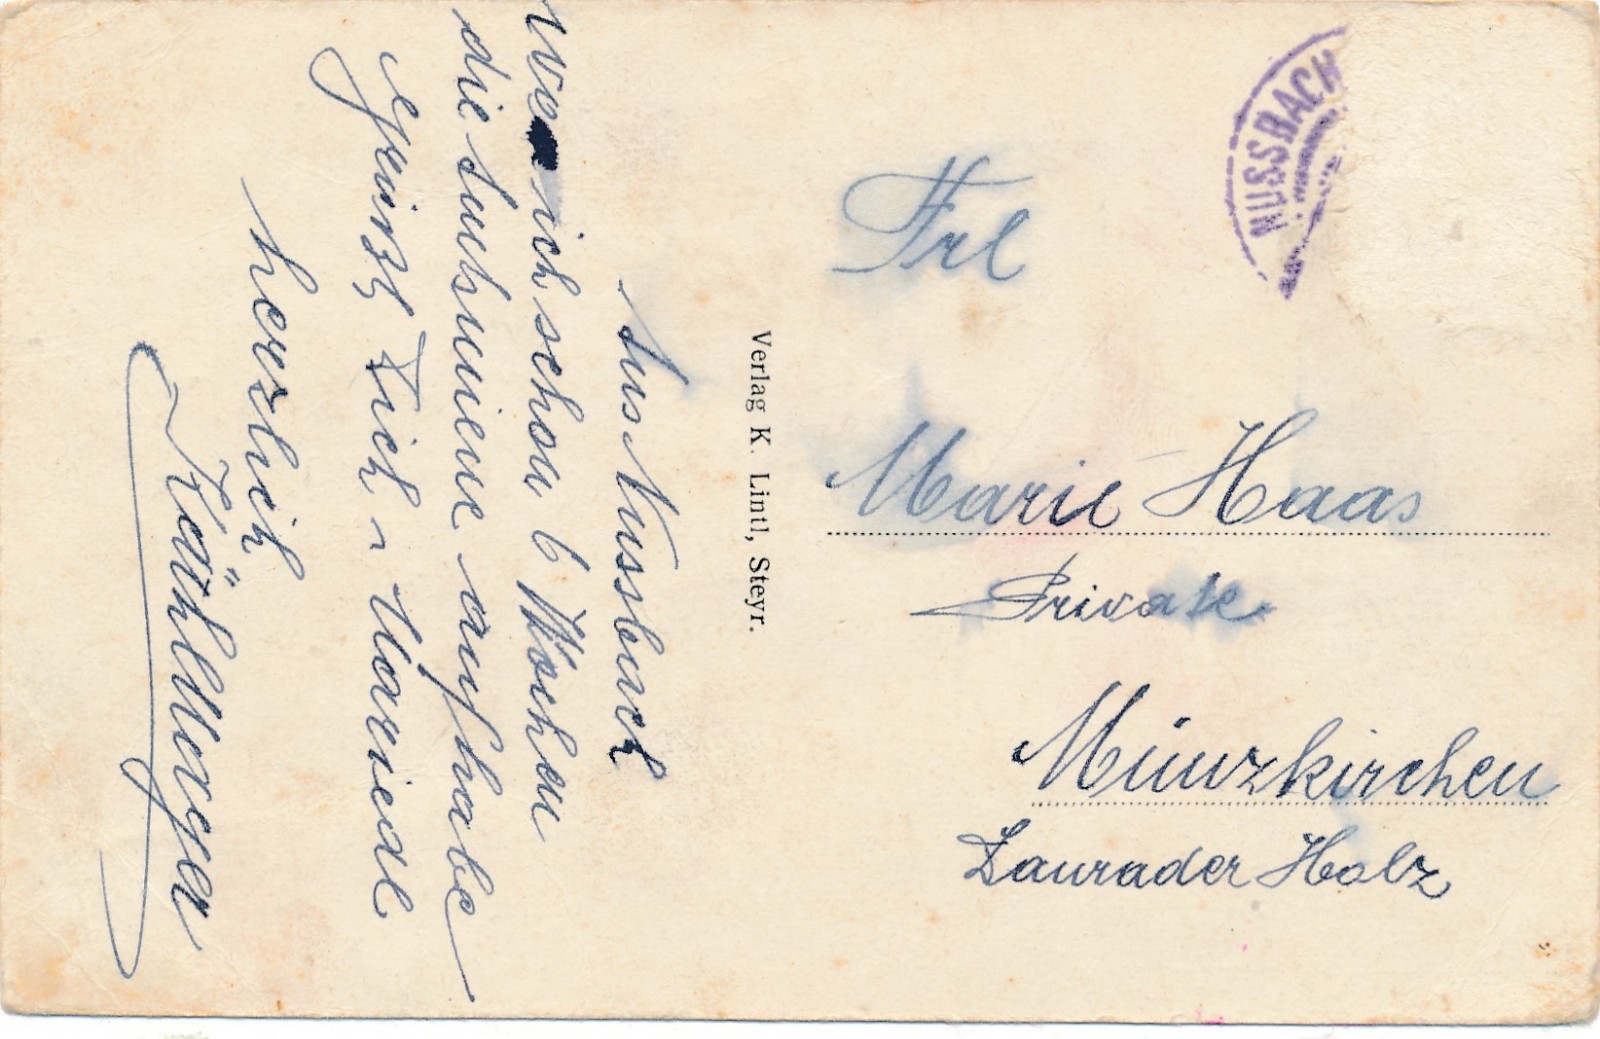 Aus Nussbach
wo ich schon 6 Wochen
die Suchsmiene aufhabe
grüsst Dich, Mariedl
herzlich
Verlag K. Lintl, Steyr.
NUSSBACH
Frl
Marie Haas
Private
Münzkirchen
Holz